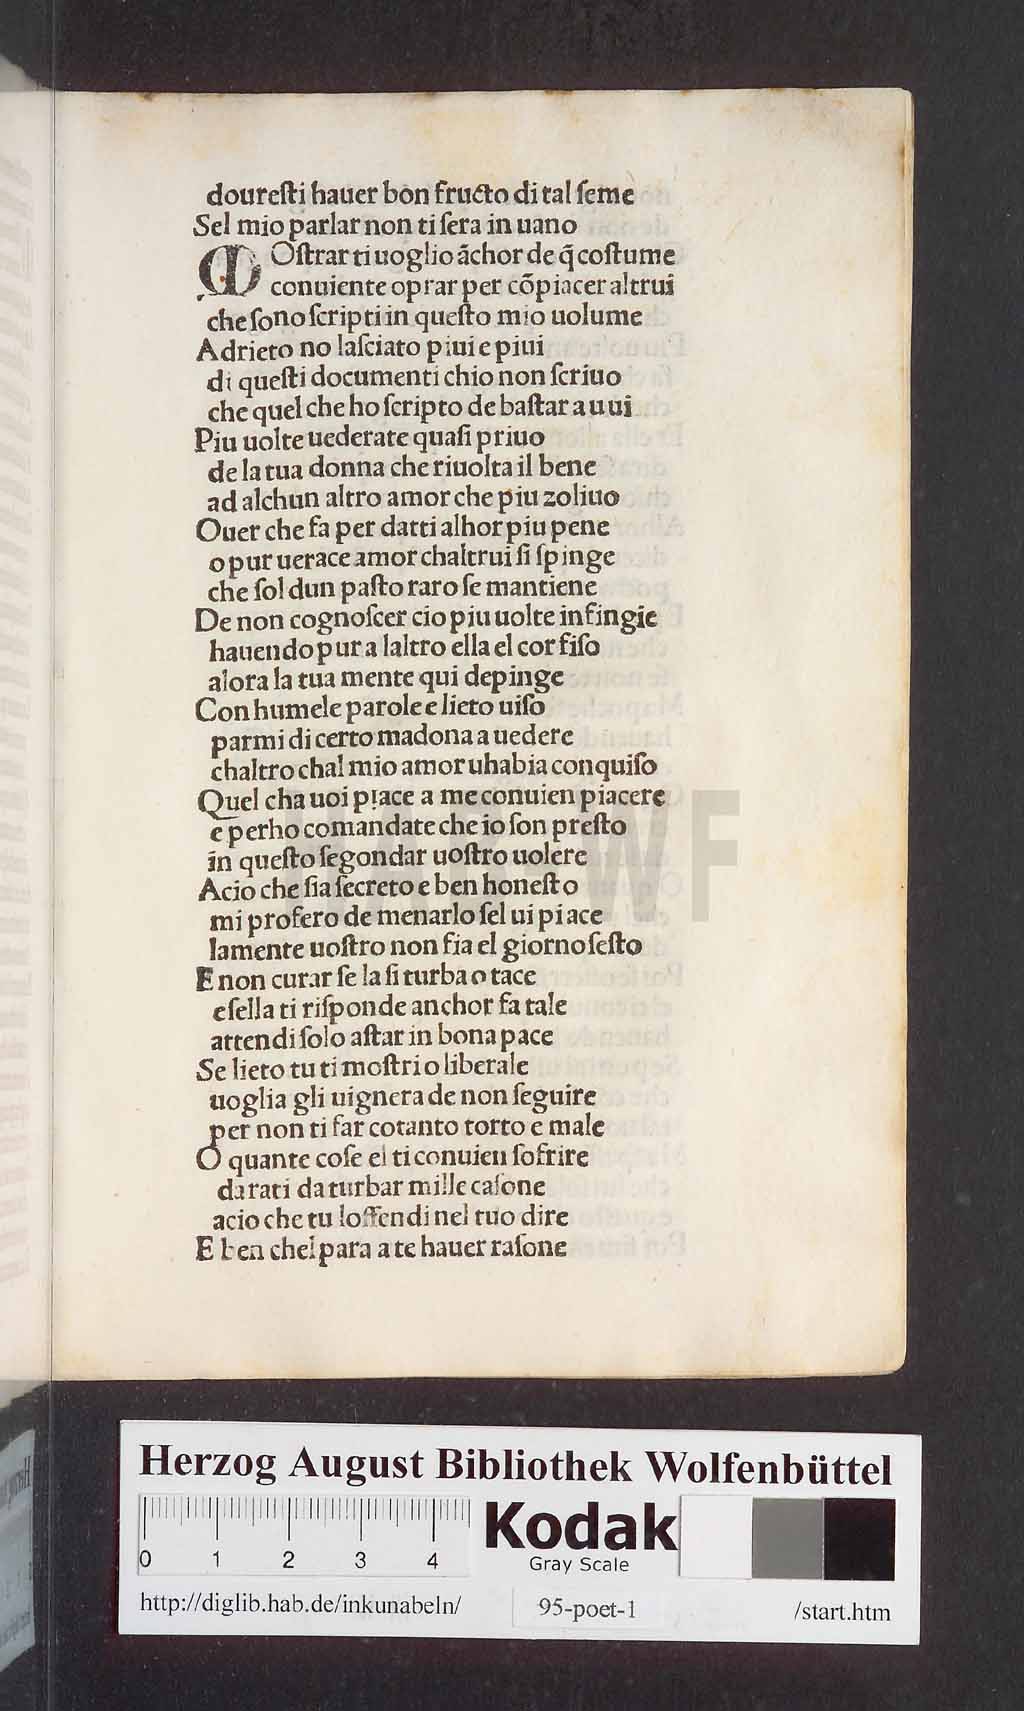 doureſti hauer bon fructo di tal ſeme
Sel mio parlar non ti ſera in uano
MOſtrar ti uoglio ãchor de q̃ coſtume
conuiente oprar per cõpiacer altrui
che ſono ſcripti in queſto mio uolume
Adrieto no laſciato piui e piui
di queſti documenti chio non ſcriuo
che quel che ho ſcripto de baſtar a uui
Piu uolte uederate quaſi priuo
de la tua donna che riuolta il bene
ad alchun altro amor che piu zoliuo
Ouer che fa per datti alhor piu pene
o pur uerace amor chaltrui ſi ſpinge
che ſol dun paſto raro ſe mantiene
De non cognoſcer cio piu uolte infingie
hauendo pur a laltro ella el cor fiſo
alora la tua mente qui depinge
Con humele parole e lieto uiſo
parmi di certo madona a uedere
chaltro chal mio amor uhabia conquiſo
Quel cha uoi piace a me conuien piacere
e perho comandate che io ſon preſto
in queſto ſegondar uoſtro uolere
Acio che ſia ſecreto e ben honeſto
mi profero de menarlo ſel ui piace
lamente uoſtro non fia el giorno ſeſto
E non curar ſe la ſi turba o tace
eſella ti riſponde anchor fa tale
attendi ſolo aſtar in bona pace
Se lieto tu ti moſtri o liberale
uoglia gli uignera de non ſeguire
per non ti far cotanto torto e male
O quante coſe el ti conuien ſofrire
da rati da turbar mille caſone
acio che tu loffendi nel tuo dire
E ben chel para a te hauer raſone
HAB-WF
Herzog August Bibliothek Wolfenbüttel
0 1 2 3 4
Kodak
Gray Scale
http://diglib.hab.de/inkunabeln/ 95-poet-1 /start.htm